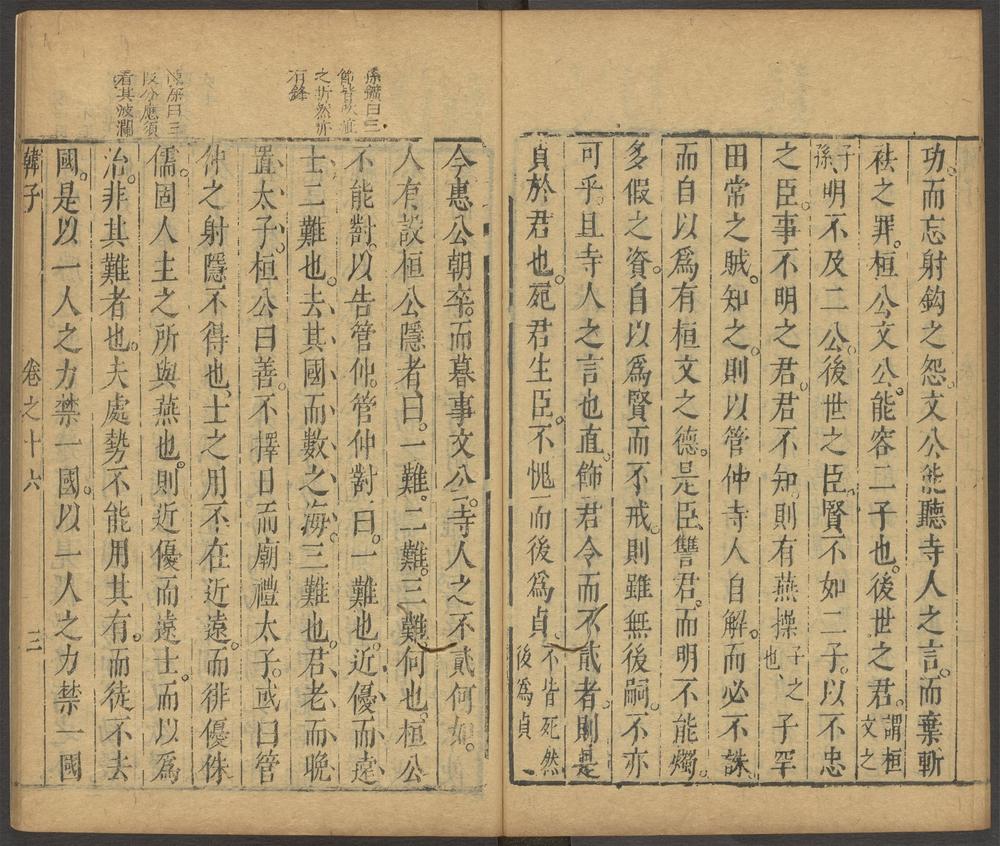 功。而忘射鈎之怨。文公能聽寺人之言。而棄斬
袪之罪。桓公文公。能容二子也。後世之君。謂桓文之
子孫明不及二公。後世之臣。賢不如二子。以不忠
之臣。事不明之君。君不知。則有燕操子之也、子罕
田常之賊。知之。則以管仲寺人自解。而必不誅。
而自以爲有桓文之德。是臣讐君。而明不能燭。
多假之資。自以爲賢而不戒。則雖無後嗣。不亦
可乎。且寺人之言也直。飾君令而不貳者。則是
貞於君也。死君生臣。不愧而後爲貞。不皆死然後爲貞
孫鑛曰三
節皆
之折然亦
有鋒
今惠公朝卒。而暮事文公。寺人之不貳何如。
人有設桓公隱者。曰。一難。二難。三難。何也。桓公
不能對。以告管仲。管仲對曰。一難也。近優而遠
士。二難也。去其國而數之海。三難也。君老而晚
置太子。桓公曰善。不擇日而廟禮太子。或曰管
仲之射隱不得也、士之用不在近遠。而徘優侏
曰三
段分應須
看其波瀾
儒。固人主之所與燕也。則近優而遠士。而以爲
治。非其難者也。夫處勢不能用其有。而徒不去
國。是以一人之力禁一國。以一人之力禁一國
韓子 卷之十六 三